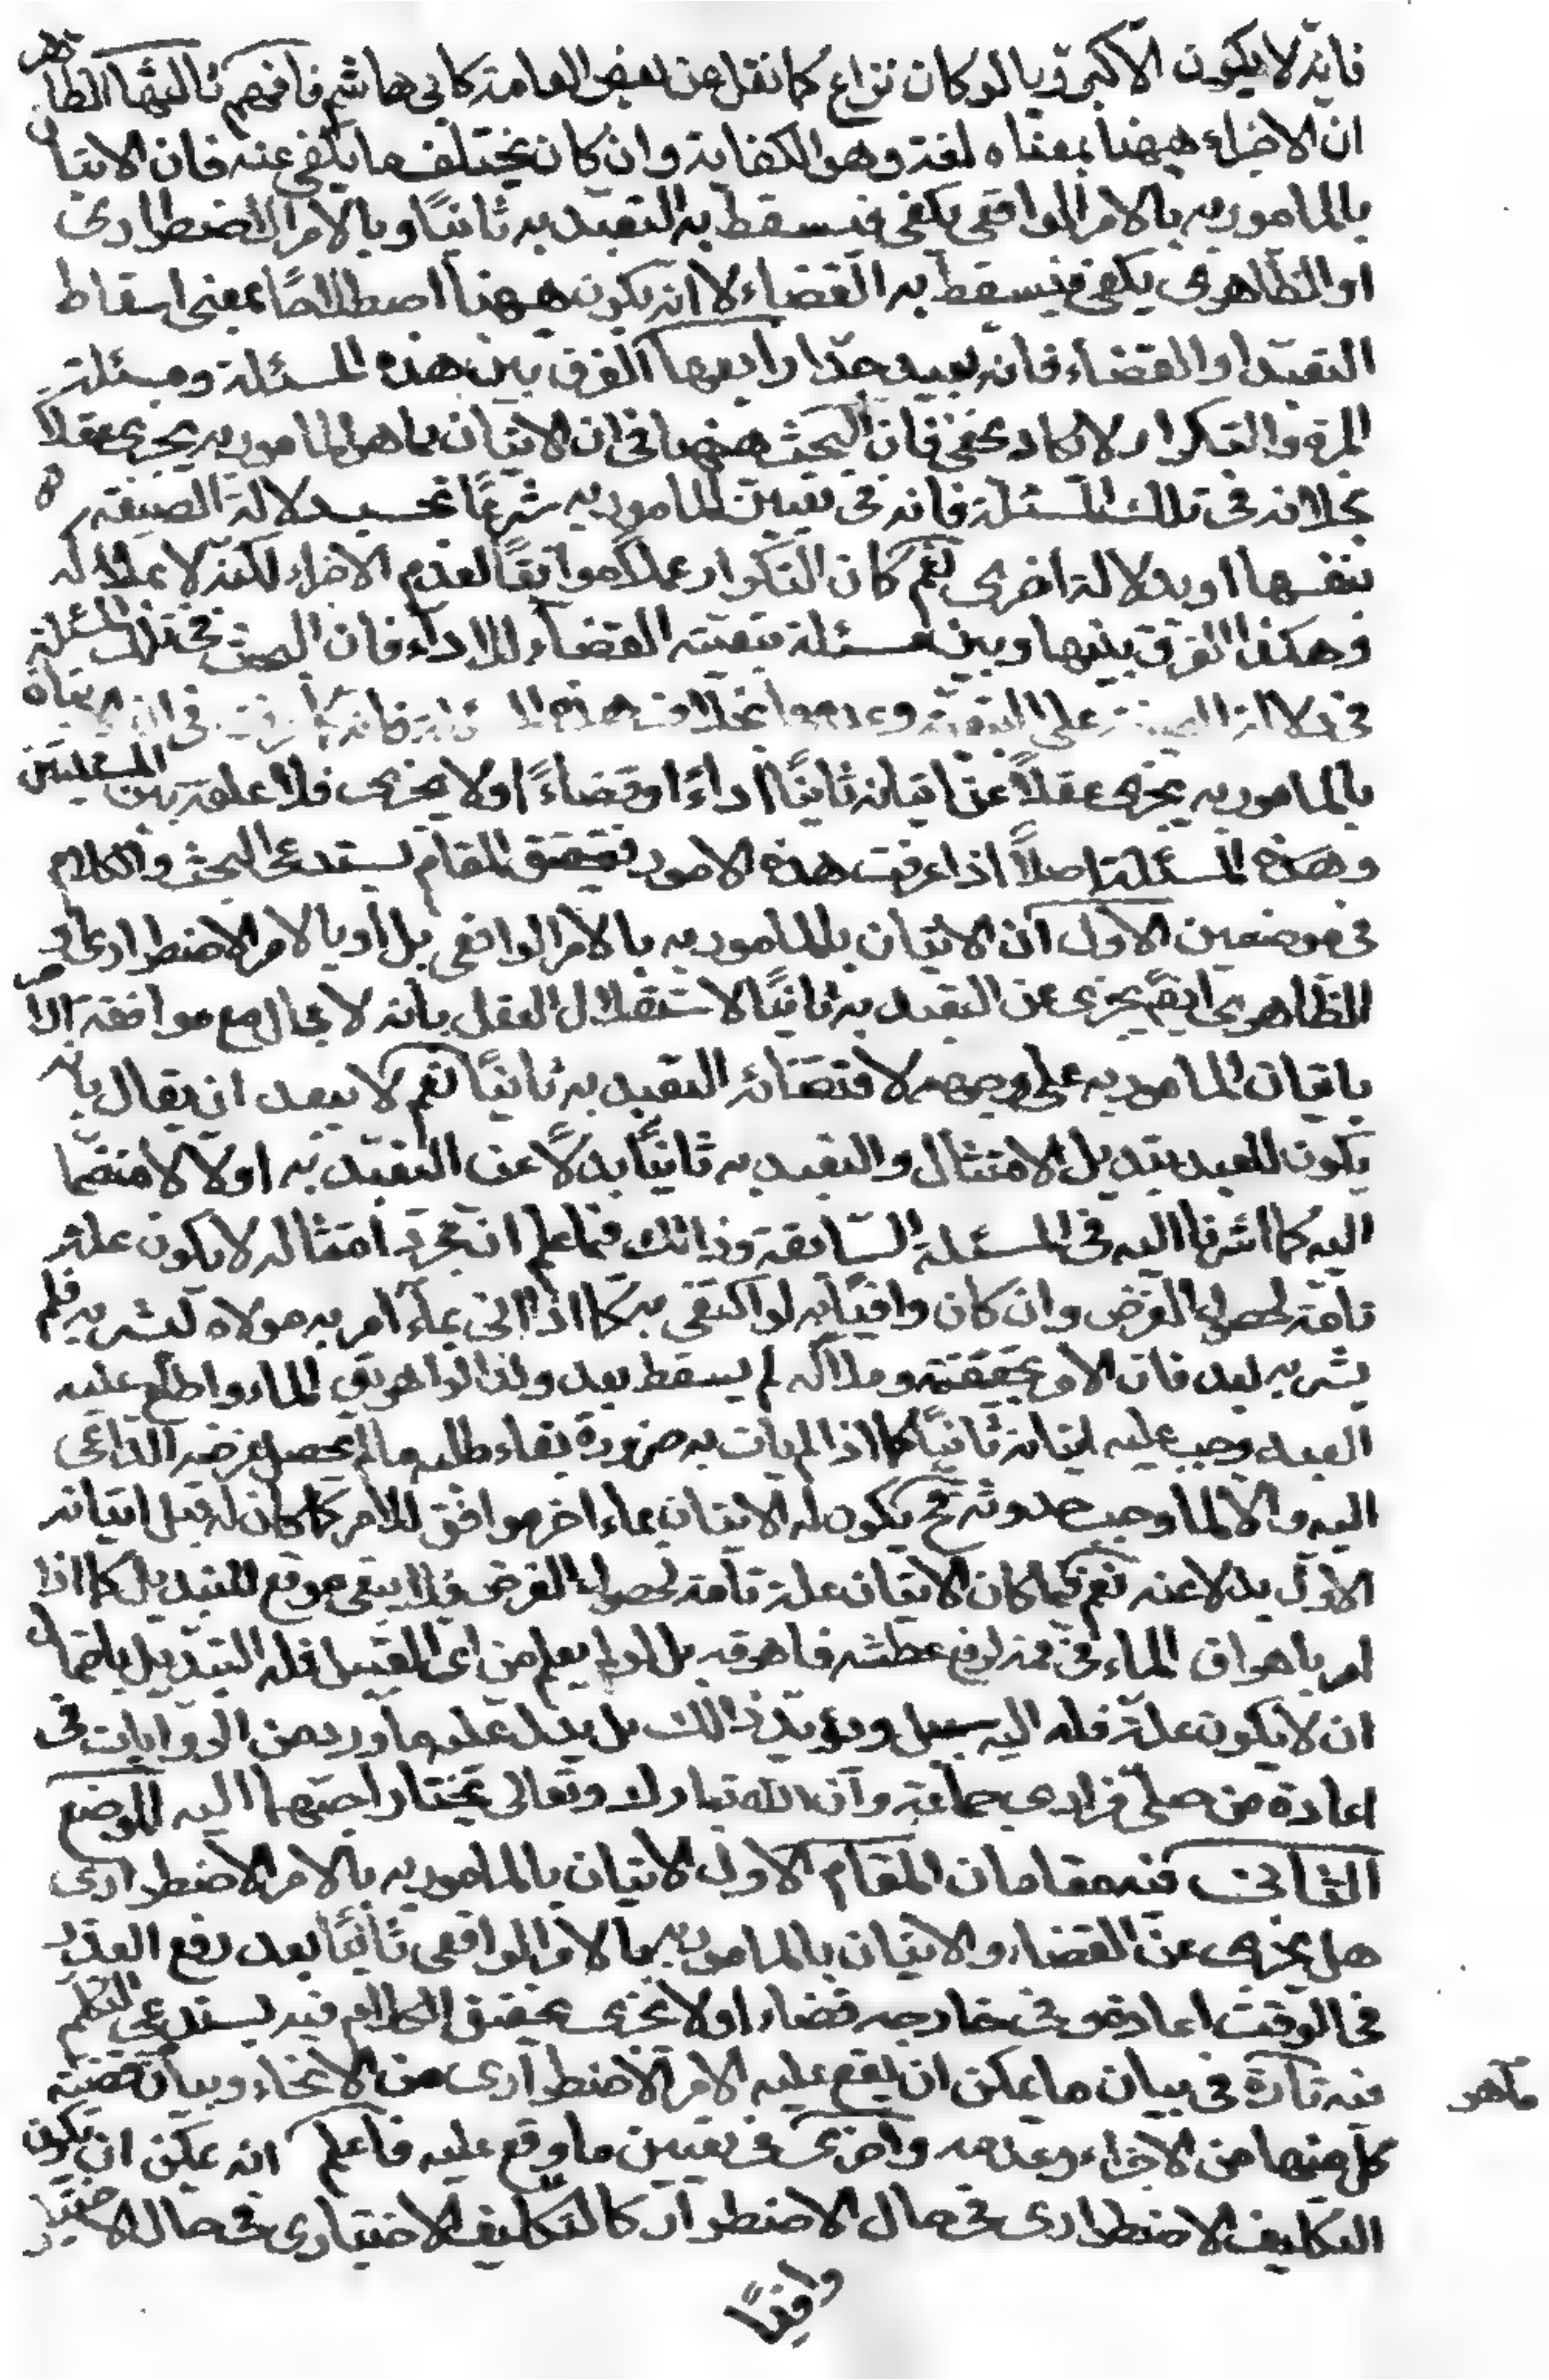 فانه لا يكون الا كبرويا لو كان نزاع كما نقل عن بعض العامة كابى هاشم فافهم ثالثها الظاهر
ان الاجزاء هيهنا بمعناه لغة وهو الكفاية وان كان يختلف ما يكفى عنه فان الاتيان
بالمامور به بالامر الواقعى يكفى فيسقط به التعبد به ثانيًا وبالامر الاضطرارى
او الظاهرى يكفى فيسقط به القضاء لا انه يكون ههنا اصطلاحًا بمعنى اسقاط
التعبد او القضاء فانه بعيد جدّا رابعها الفرق بين هذه المسئلة ومسئلة
المرة والتكرار لا يكاد يخفى فان البحث ههنا فى ان الاتيان بما هو المامور به يجزى عقلًا
بخلافه فى تلك المسئلة فانه فى تعيين المامور به شرعًا بحسب دلالة الصيغة
بنفسها او بدلالة اخرى نعم كان التكرار عملًا موافقًا لعدم الاجزاء لكنه لا بملاكه
وهكذا الفرق بينها وبين مسئلة تبعية القضاء للاداء فان البحث فى تلك المسئلة
فى دلالة الصيغة على التبعية وعدمها بخلاف هذه المسئلة فانه كما عرفت فى ان الاتيان
بالمامور به يجزى عقلًا عن اتيانه ثانيًا اداءً او قضاءً او لا يجزى فلا علقة بين المسئلتين
وهذه المسئلة اصلًا اذا عرفت هذه الامور فتحقيق المقام يستدعى البحث والكلام
فى موضعين الاول ان الاتيان بالمامور به بالامر الواقعى بل او بالامر الاضطرارى او
الظاهرى ايضً يجزى عن التعبد به ثانيًا لاستقلال العقل بانه لا مجال مع موافقة الامر
باتيان المامور به على وجهه لاقتضائه التعبد به ثانيًا نعم لا يبعد ان يقال بانه
يكون للعبد تبديل الامتثال والتعبد به ثانيًا بدلًا عن التعبد به اولا لا منضما
اليه كما اشرنا اليه فى المسئلة السابقة وذلك فيما علم ان مجرد امتثاله لا يكون علة
تامة لحصول الغرض وان كان وافيًا به لو اكتفى به كما اذا اتى بماء امر به مولاه ليشربه فلم
يشربه بعد فان الامر بحقيقته وملاكه لم يسقط بعد ولذا لو اهريق الماء واطلع عليه
العبد وجب عليه اتيانه ثانيًا كما اذا لم يات به ضرورة بقاء طلبه ما لم يحصل غرضه الداعى
اليه والا لما وجب حدوثه فح يكون له الاتيان بماء اخر موافق للامر كما كان له قبل اتيانه
الاول بدلا عنه نعم فيما كان الاتيان علة تامة لحصول الغرض فلا يبقى موقع للتبديل كما اذا
امر باهراق الماء فى فمه لرفع عطشه فاهرقه بل لو لم يعلم من اى القبيل فله التبديل باحتمال
ان لا يكون علة فله اليه سبيل ويؤيد ذلك بل يدل عليه ما ورد من الروايات فى
اعادة من صلى فرادى جماعة وان الله تبارك وتعالى يختار احبهما اليه الموضع
الثانى فيه مقامان المقام الاول الاتيان بالمامور به بالامر الاضطرارى
هل يجزى عن القضاء والاتيان بالمامور به بالامر الواقعى ثانيًا بعد رفع العذر
فى الوقت اعادة وفى خارجه قضاء او لا يجزى تحقيق الكلام فيه يستدعى التكلم
فيه تارة فى بيان ما يمكن ان يقع عليه الامر الاضطرارى من الانحاء وبيان قضية
ما هو
كل منها من الاجزاء وعدمه واخرى فى تعيين ما وقع عليه فاعلم انه يمكن ان يكون
التكليف الاضطرارى فى حال الاضطرار كالتكليف الاختيارى فى حال الاختيار
وافيًا